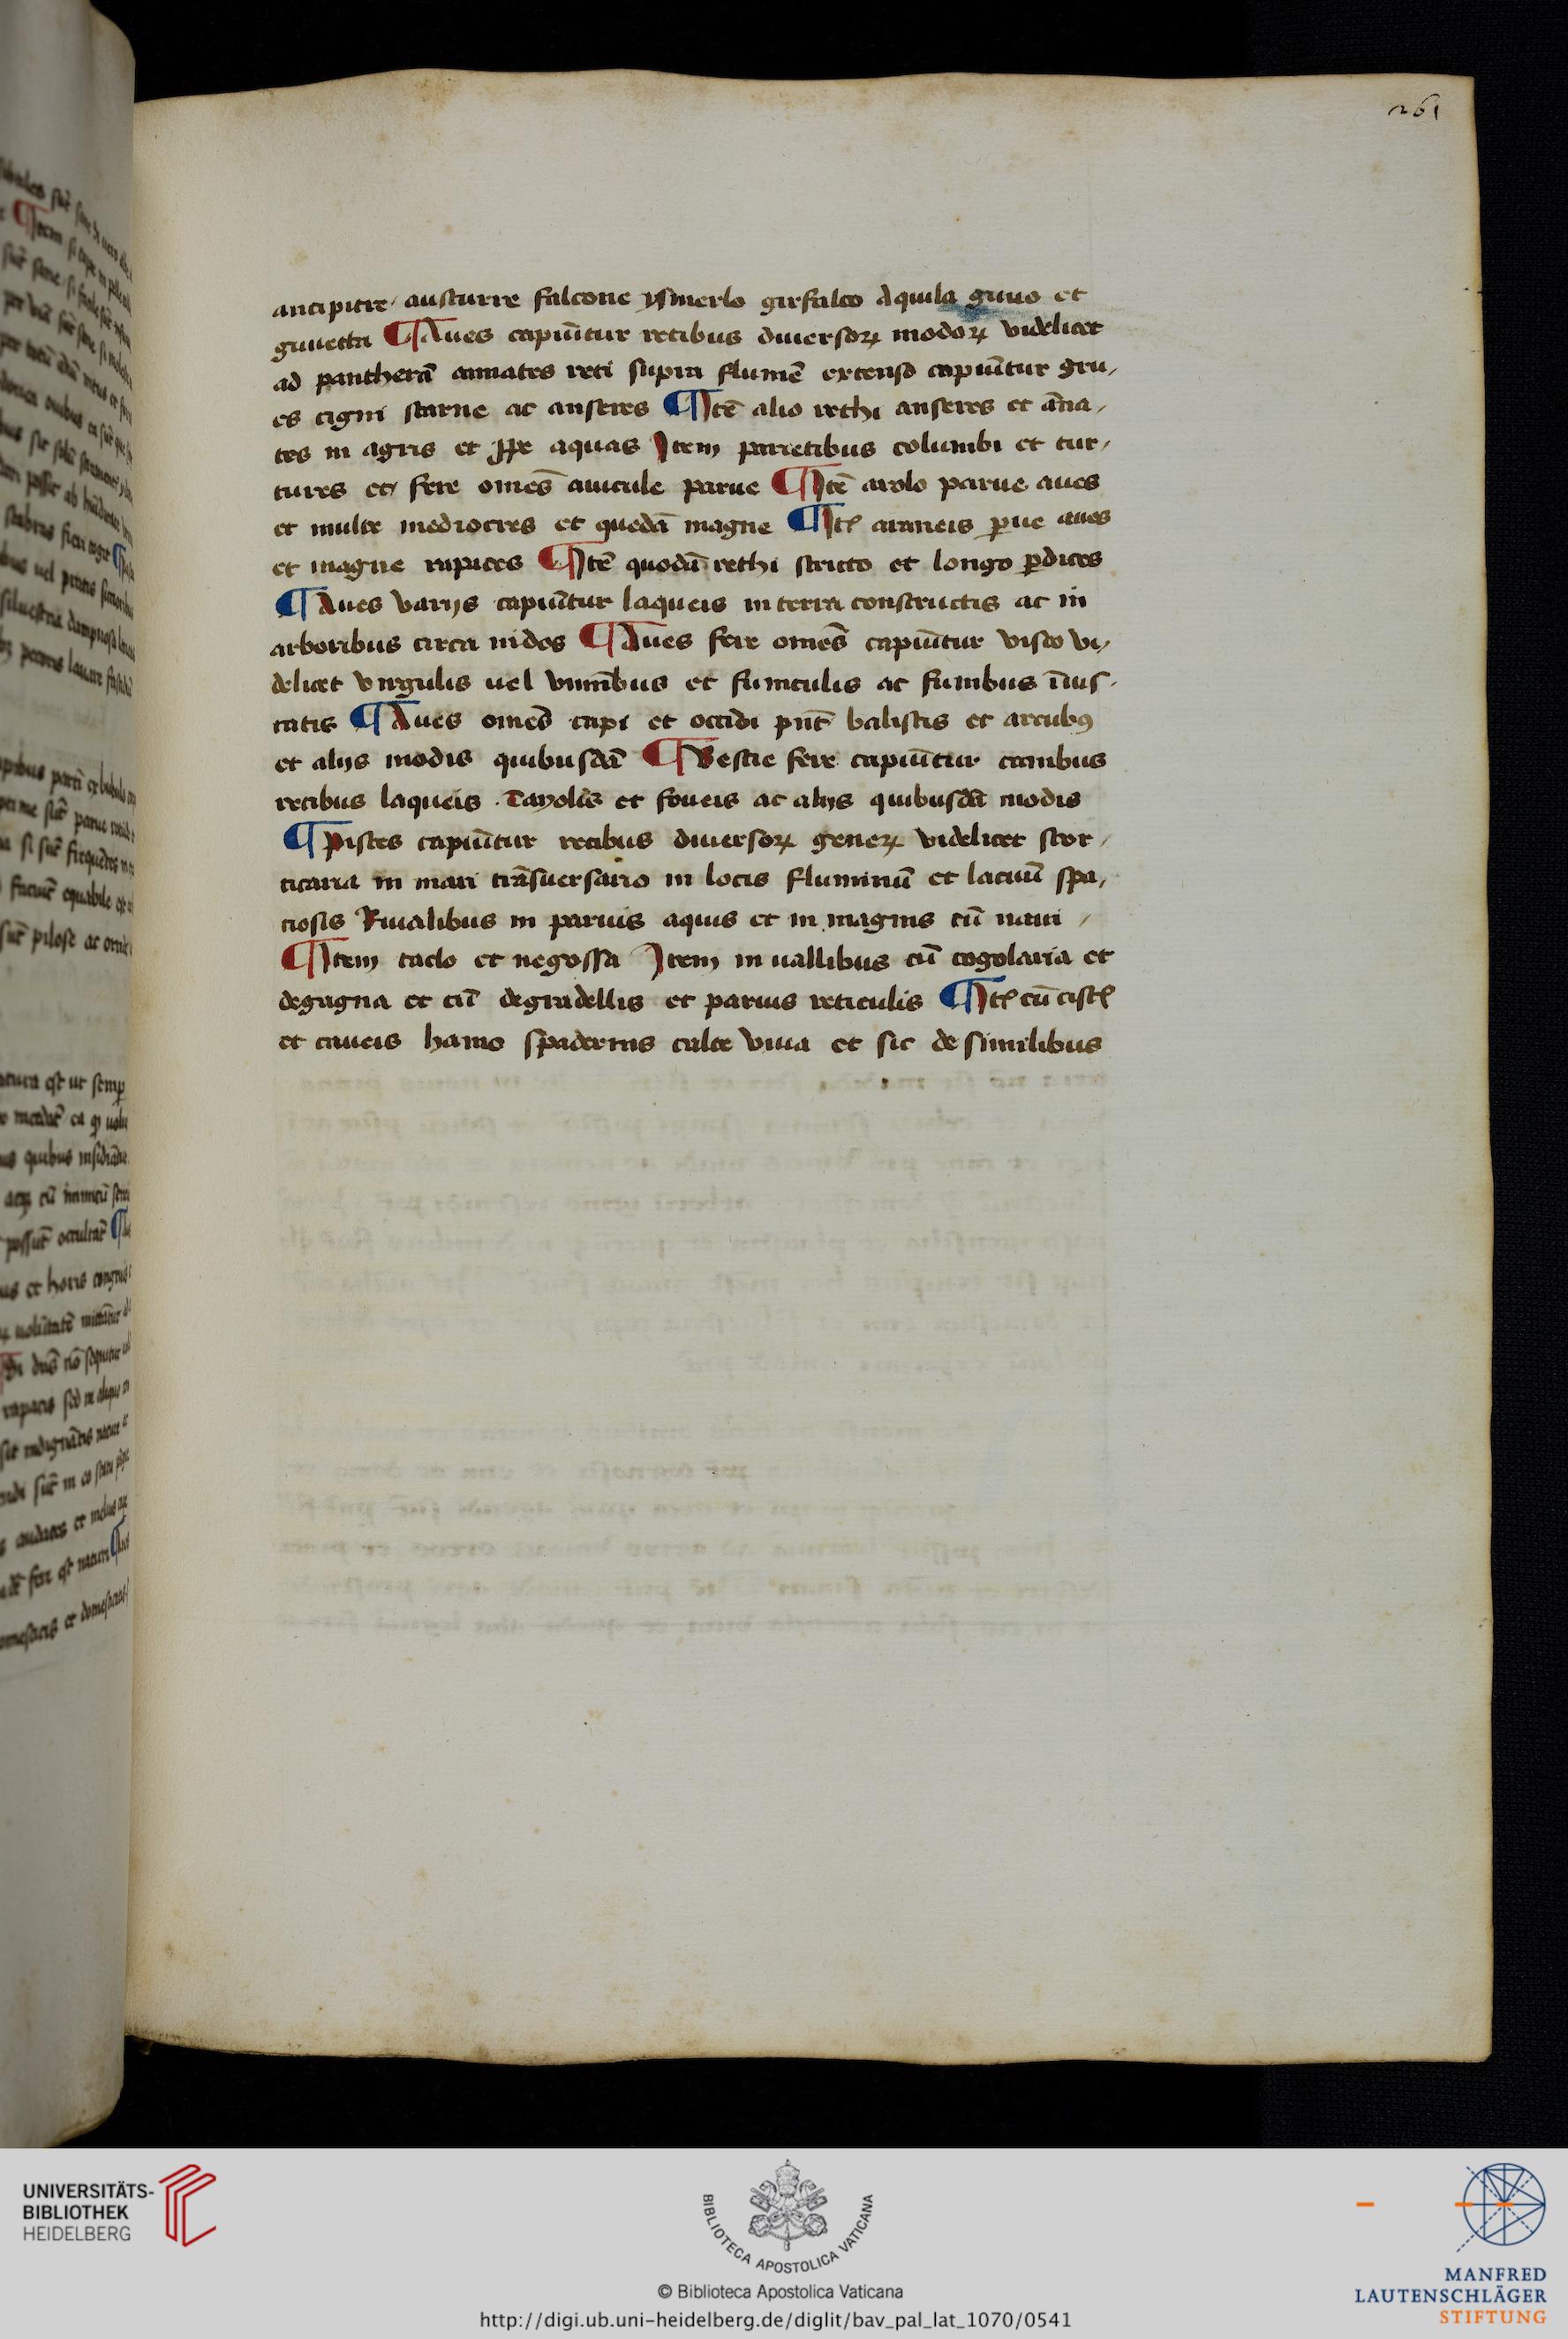 261
ancipitre austurre falcone ysmerlo girfalco Aquila guuo et
giuuetta ¶ Aues capiūtur retibus diuersoꝝ modoꝝ videlicet
ad pantherā annates reti supra flumē extenso capiūtur gru,
es cigni starne ac anseres ¶ Itē alio rethi anseres et āna,
tes in agris et ꝓpe aquas Item parietibus columbi et tur,
tures et fere omēs auicule parue ¶ Itē arolo parue aues
et multe mediocres et quedā magne ¶ Itē araneis ꝑue aues
et magne rapaces ¶ Itē quodā rethi stricto et longo ꝑdices
¶ Aues varijs capiūtur laqueis in terra constructis ac in
arboribus circa nidos ¶ Aues fere omēs capiūtur visco vi,
delicet virgulis uel viminibus et funiculis ac funibus īuis,
catis ¶ Aues omēs capi et occidi pn̄t balistis et arcubꝰ
et alijs modis quibusdā ¶ Bestie fere capiūtur canibus
retibus laqueis Tayolis et foueis ac alijs quibusdā modis
¶ pisces capiūtur retibus diuersoꝝ geneꝝ videlicet scor,
ticaria in mari trāsuersario in locis fluminū et lacuū spa,
ciosis Riualibus in paruis aquis et in magnis cū naui,
¶ Item traclo et negossa Item in uallibus cū cogolaria et
degagna et cū degradellis et paruis reticulis ¶ Itē cū cistē
et caueis hamo spadernis calce viua et sic de similibus
UNIVERSITÄTS-
BIBLIOTHEK
HEIDELBERG
BIBLIOTECA APOSTOLICA VATICANA
© Biblioteca Apostolica Vaticana
http://digi.ub.uni-heidelberg.de/diglit/bav_pal_lat_1070/0541
MANFRED
LAUTENSCHLÄGER
STIFTUNG